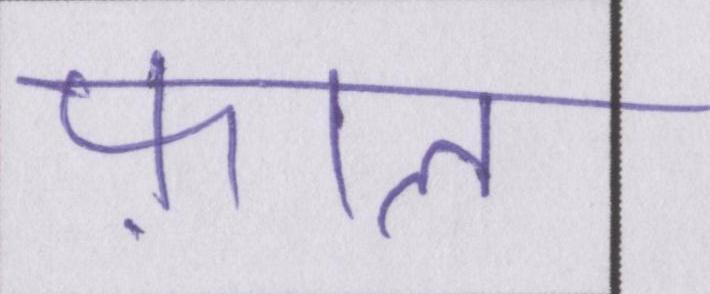 फ़ाल